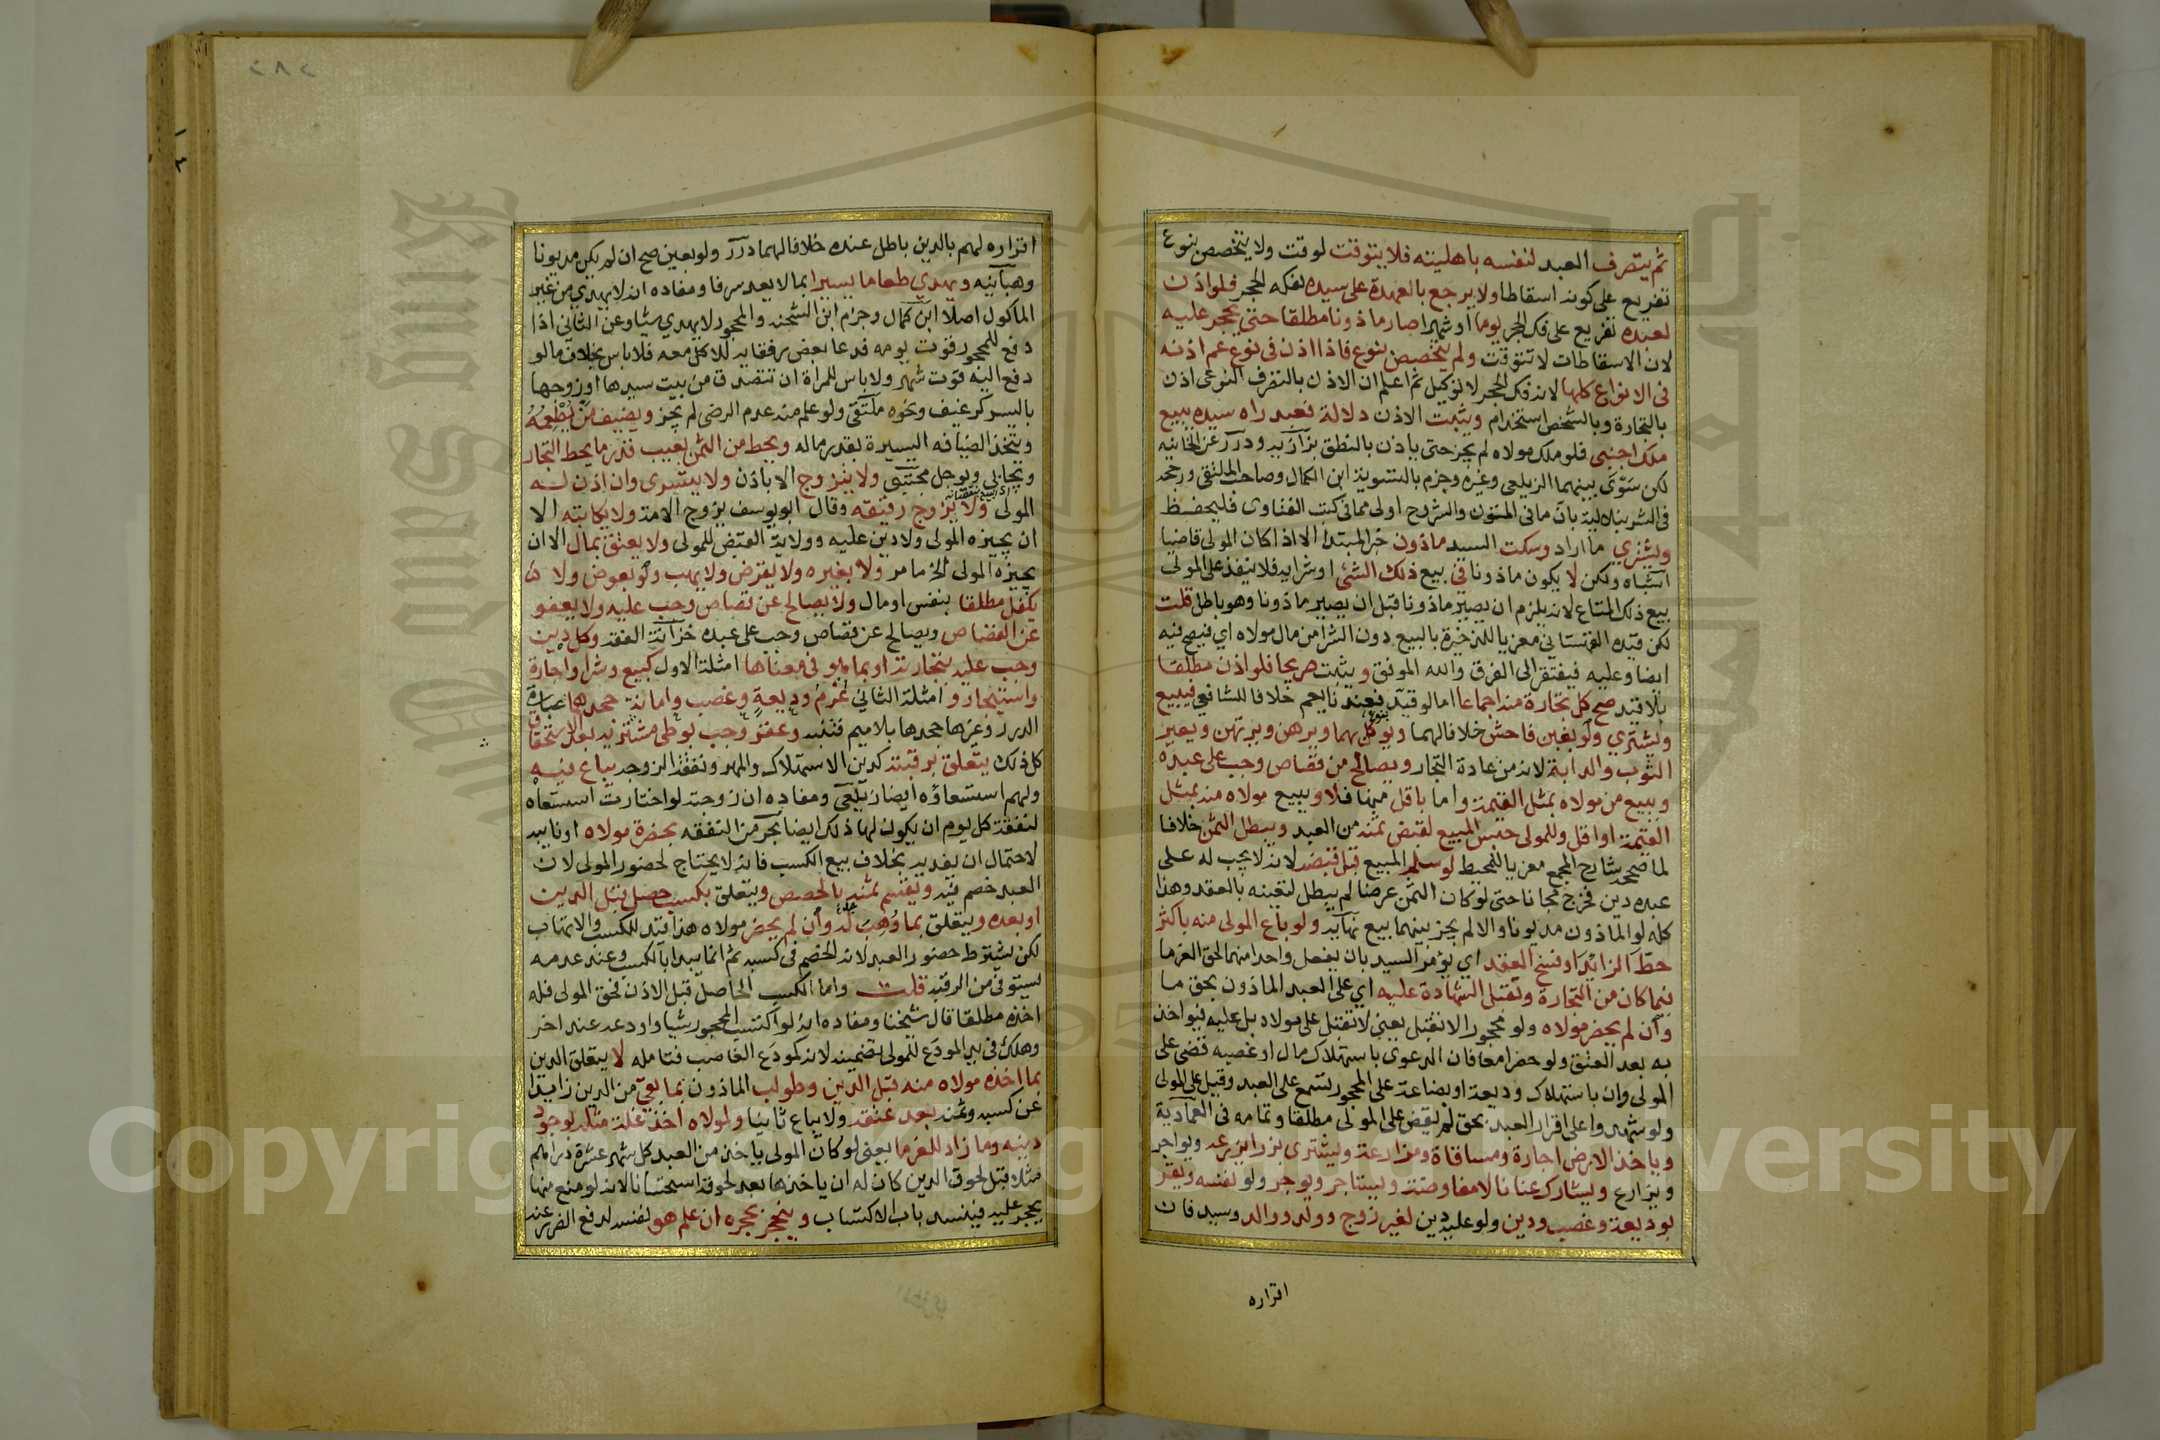 ثم يتصرف العبد لنفسه باهليته فلا يتوقت لوقت ولا يتخصص بنوع
تفريع على كونه اسقاطا ولا يرجع بالعهدة على سيده لفكه الحجر فلو اذن
لعبده تفريع على فك الحجر يوما او شهرا صار ماذونا مطلقا حتى يحجر عليه
لان الاسقاطات لا تتوقت ولم يتخصص بنوع فاذا اذن في نوع عم اذنه
في الانواع كلها لانه فك الحجر لا توكيل ثم اعلم ان الاذن بالتصرف النوعي اذن
بالتجارة وبالشخص استخدام ويثبت الاذن دلالة فعبد راه سيده يبيع
ملك اجنبي فلو ملك مولاه لم يجز حتى ياذن بالنطق بزازيه ودرر عن الخانيه
لكن سوى بينهما الزيلعي وغيره وجزم بالتسوية ابن الكمال وصاحب الملتقى ورجحه
في الشرنبلالية بان ما في المتون والشروح اولى مما في كتب الفتاوى فليحفظ
ويشتري ما اراد وسكت السيد ماذون خبر المبتدا الا اذا كان المولى قاضيا
اشباه ولكن لا يكون ماذونا في بيع ذلك الشئ او شرايه فلا ينفذ على المولى
بيع ذلك المتاع لانه يلزم ان يصير ماذونا قبل ان يصير ماذونا وهو باطل قلت
لكن قيده القهستاني معزيا للذخيرة بالبيع دون الشرا من مال مولاه اي فيصح فيه
ايضا وعليه فيفتقر الى الفرق والله الموفق ويثبت صريحا فلو اذن مطلقا
بلا قيد صح كل تجارة منه اجماعا اما لو قيد فعندنا يعم خلافا للشافعي فيبيع
ويشتري ولو بغبن فاحش خلافا لهما ويوكل بهما ويرهن ويرتهن ويعير
الثوب والدابة لانه من عادة التجار ويصالح من قصاص وجب على عبده
ويبيع من مولاه بمثل القيمة واما باقل منها فلا ويبيع مولاه منه بمثل
القيمة او اقل وللمولى حبس المبيع لقبض ثمنه من العبد ويبطل الثمن خلافا
لما صححه شارح المجمع معزيا للمحيط لو سلم المبيع قبل قبضه لانه لا يجب له على
عبده دين فخرج مجانا حتى لو كان الثمن عرضا لم يبطل لتعينه بالعقد وهذا
كله لو الماذون مديونا والا لم يجز بينهما بيع نهايه ولو باع المولى منه باكثر
حط الزائد او فسخ العقد اي يؤمر السيد بان يفعل واحدا منهما لحق الغرما
فيما كان من التجارة وتقبل الشهادة عليه اي على العبد الماذون بحق ما
وان لم يحضر مولاه ولو محجورا لا تقبل يعني لا تقبل على مولاه بل عليه فيواخذ
به بعد العتق ولو حضرا معا فان الدعوى باستهلاك مال او غصبه قضى على
المولى وان باستهلاك وديعة او بضاعة على المحجور تسمع على العبد وقيل على المولى
ولو شهدوا على اقرار العبد بحق لم يقض على المولى مطلقا وتمامه في العمادية
وياخذ الارض اجارة ومساقاة ومزارعة ويشتري بزرا يزرعه ويواجر
ويزارع ويشارك عنانا لا مفاوضة ويستاجر ويوجر ولو نفسه ويقر
بوديعة وغصب ودين ولو عليه دين لغير زوج وولد ووالد وسيد فان
اقراره
اقراره لهم بالدين باطل عنده خلافا لهما درر ولو بعين صح ان لم يكن مديونا
وهبانيه ويهدي طعاما يسيرا بما لا يعد سرفا ومفاده انه لا يهدي من غير
الماكول اصلا ابن كمال وجزم ابن الشحنه والمحجور لا يهدي شيا وعن الثاني اذا
دفع للمحجور قوت يومه فدعا بعض رفقايه للاكل معه فلا باس بخلاف ما لو
دفع اليه قوت شهر ولا باس للمراة ان تتصدق من بيت سيدها او زوجها
باليسير كرغيف ونحوه ملتقى ولو علم منه عدم الرضى لم يجز ويضيف من يطعمه
ويتخذ الضيافه اليسيرة بقدر ماله ويحط من الثمن بعيب قدر ما يحط التجار
ويحابي ويوجل مجتبى ولا يتزوج الا باذن ولا يتسرى وان اذن له
المولى ولا يزوج رقيقه وقال ابو يوسف يزوج الامة ولا يكاتبه الا
ان يجيزه المولى ولا دين عليه وولاية القبض للمولى ولا يعتق بمال الا ان
يجيزه المولى الخ ما مر ولا بغيره ولا يقرض ولا يهب ولو بعوض ولا
يكفل مطلقا بنفس او مال ولا يصالح عن قصاص وجب عليه ولا يعفو
عن القصاص ويصالح عن قصاص وجب على عبده خزانة الفقه وكل دين
وجب عليه بتجارته او بما هو في معناها امثلة الاول كبيع وشرا واجارة
واستيجار و امثلة الثاني غرم وديعة وغصب وامانة جحدها عبارة
الدرر وغيرها جحدها بلا ميم فتنبه وعقر وجب بوطي مشتريه بعد الاستحقاق
كل ذلك يتعلق برقبته كدين الاستهلاك والمهر ونفقة الزوجه يباع فيه
ولهم استسعاؤه ايضا زيلعي ومفاده ان زوجته لو اختارت استسعاه
لنفقة كل يوم ان يكون لها ذلك ايضا بحر من النفقه بحضرة مولاه او نايبه
لاحتمال ان يفديه بخلاف بيع الكسب فانه لا يحتاج لحضور المولى لان
العبد خصم فيه ويقسم ثمنه بالحصص ويتعلق بكسب حصل قبل الدين
او بعده ويتعلق بما وهب له وان لم يحضر مولاه هذا قيد للكسب والاتهاب
لكن يشترط حضور العبد لانه الخصم في كسبه ثم انما يبدا بالكسب وعند عدمه
يستوفى من الرقبة قلت واما الكسب الحاصل قبل الاذن فحق المولى فله
اخذه مطلقا قال شيخنا ومفاده انه لو اكتسب المحجور شيا واودعه عند اخر
وهلك في يد المودع للمولى تضمينه لانه كمودع الغاصب فتامله لا يتعلق الدين
بما اخذه مولاه منه قبل الدين وطولب الماذون بما بقي من الدين زايدا
عن كسبه وثمنه بعد عتقه ولا يباع ثانيا ولمولاه اخذ غلة مثله لوجود
دينه وما زاد للغرما يعني لو كان المولى ياخذ من العبد كل شهر عشرة دراهم
مثلا قبل لحوق الدين كان له ان ياخذها بعد لحوقه استحسانا لانه لو منع منها
يحجر عليه فينسد باب الاكتساب وينحجر بحجره ان علم هو لنفسه لدفع الضرر عنه
Copyright © King Saud University